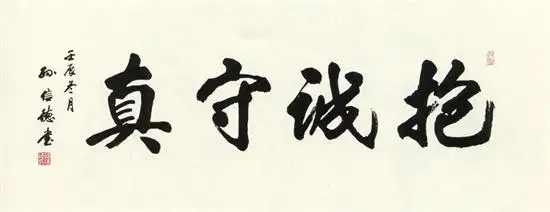 抱诚守真
壬辰冬月
孙信德书